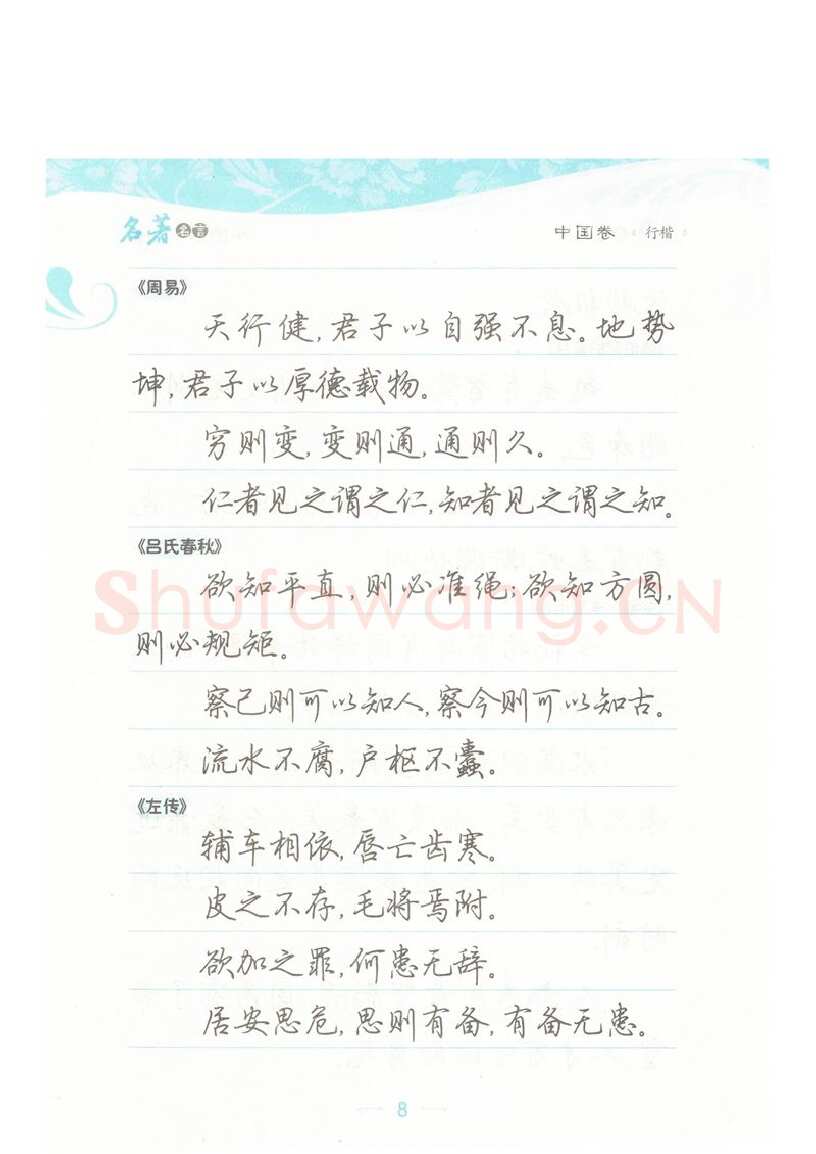 名著名言
中国卷 行楷
《周易》
天行健,君子以自强不息。地势
坤,君子以厚德载物。
穷则变,变则通,通则久。
仁者见之谓之仁,知者见之谓之知。
《吕氏春秋》
欲知平直,则必准绳;欲知方圆,
则必规矩。
察己则可以知人,察今则可以知古。
流水不腐,户枢不蠹。
《左传》
辅车相依,唇亡齿寒。
皮之不存,毛将焉附。
欲加之罪,何患无辞。
居安思危,思则有备,有备无患。
8
Shufawang.CN